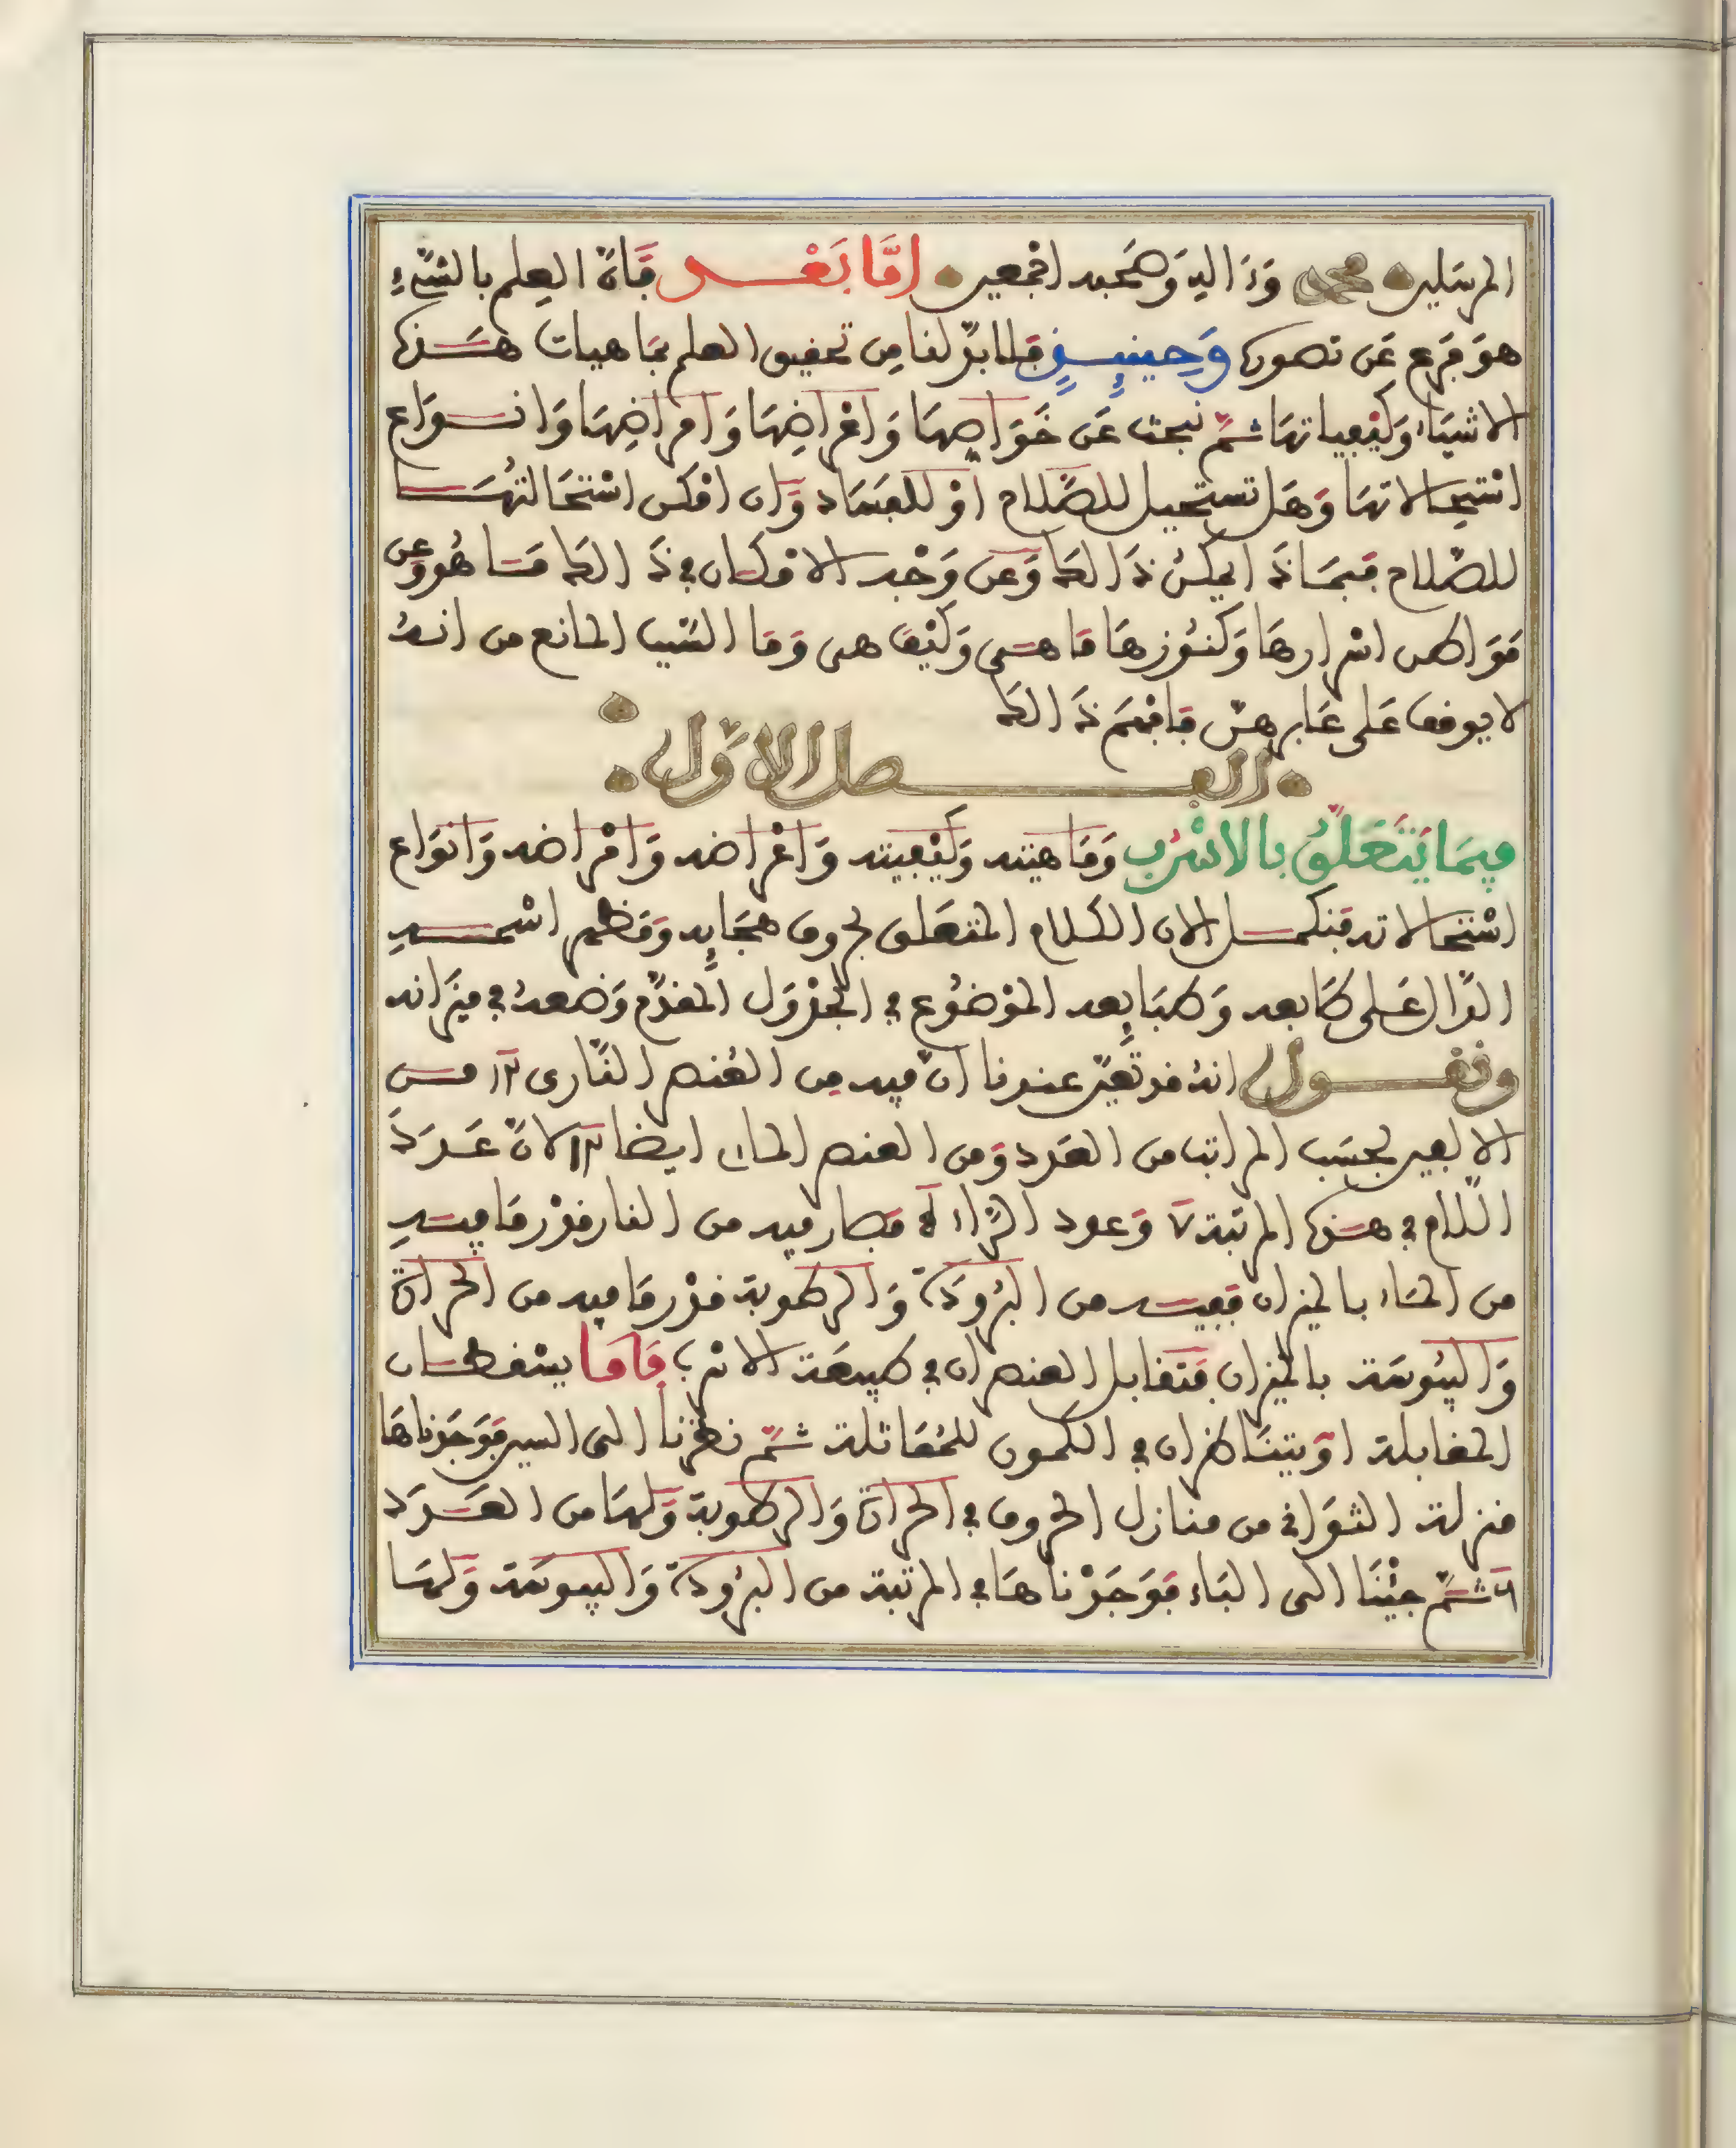 المرسلين محمد وءاله وصحبه اجمعين اَمَّا بَعْد فَإن العلم بالشيء
هو فرع عن تصوره وحينئذ فلا بد لنا من تحقيق العلم بماهيات هذه
الاشياء وكيفياتها ثم نبحث عن خواصها واعراضها وامراضها وانواع
استحالاتها وهل تستحيل للصلاح او للفساد وان امكن استحالتها
للصلاح فبماذا يمكن ذالك وعن وجه الامكان في ذالك ما هو وعن
مواطن اسرارها وكنوزها ما هي وكيف هي وما السبب المانع من انه
لا يوقف على عابرهن فافهم ذالك
الفصل الاول
فيما يتعلق بالاسرب وماهيته وكيفيته واعراضه وامراضه وانواع
استحالاته فبكمل الان الكلام المتعلق بحروف هجايه ومظهر اسمه
الدال على طابعه وطبايعه الموضوع في الجدول المقدم وضعه في ميزانه
ونقول انه قد تعين عندنا ان فيه من العنصر الناري ١٢ من
الالفين بحسب المراتب من العدد ومن العنصر الماءي ايضا ١٢ لان عدد
اللام في هذه المرتبة ٧ وعدد الراء ٥ فصار فيه من النار قدر ما فيه
من الماء بالميزان ففيه من البرودة والرطوبة قدر ما فيه من الحرارة
واليبوسة بالميزان فتقابل العنصران في طبيعة الاسرب فاما يسقطان
المقابلة او يتناظران في الكمون للمقاتلة ثم نظرنا الى السين فوجدناها
منزلة الثواني من منازل الحروف في الحرارة والرطوبة ولها من العدد
٦ ثم جئنا الى الباء فوجدناها في المرتبة من البرودة واليبوسة ولها